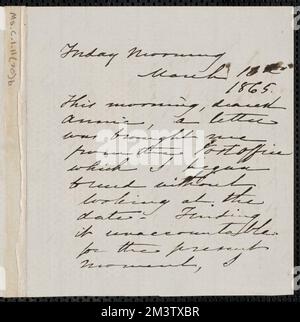 Friday Morning
March 10th
1865.
This morning, dearest
Annie, a letter
was brought me
from the Post office
which I began
to read without
looking at the
date. Finding
it unaccountable
for the present
moment, I
Ms. C.1.11 (207)b
alamy
www.alamy.com
2M3TXBR